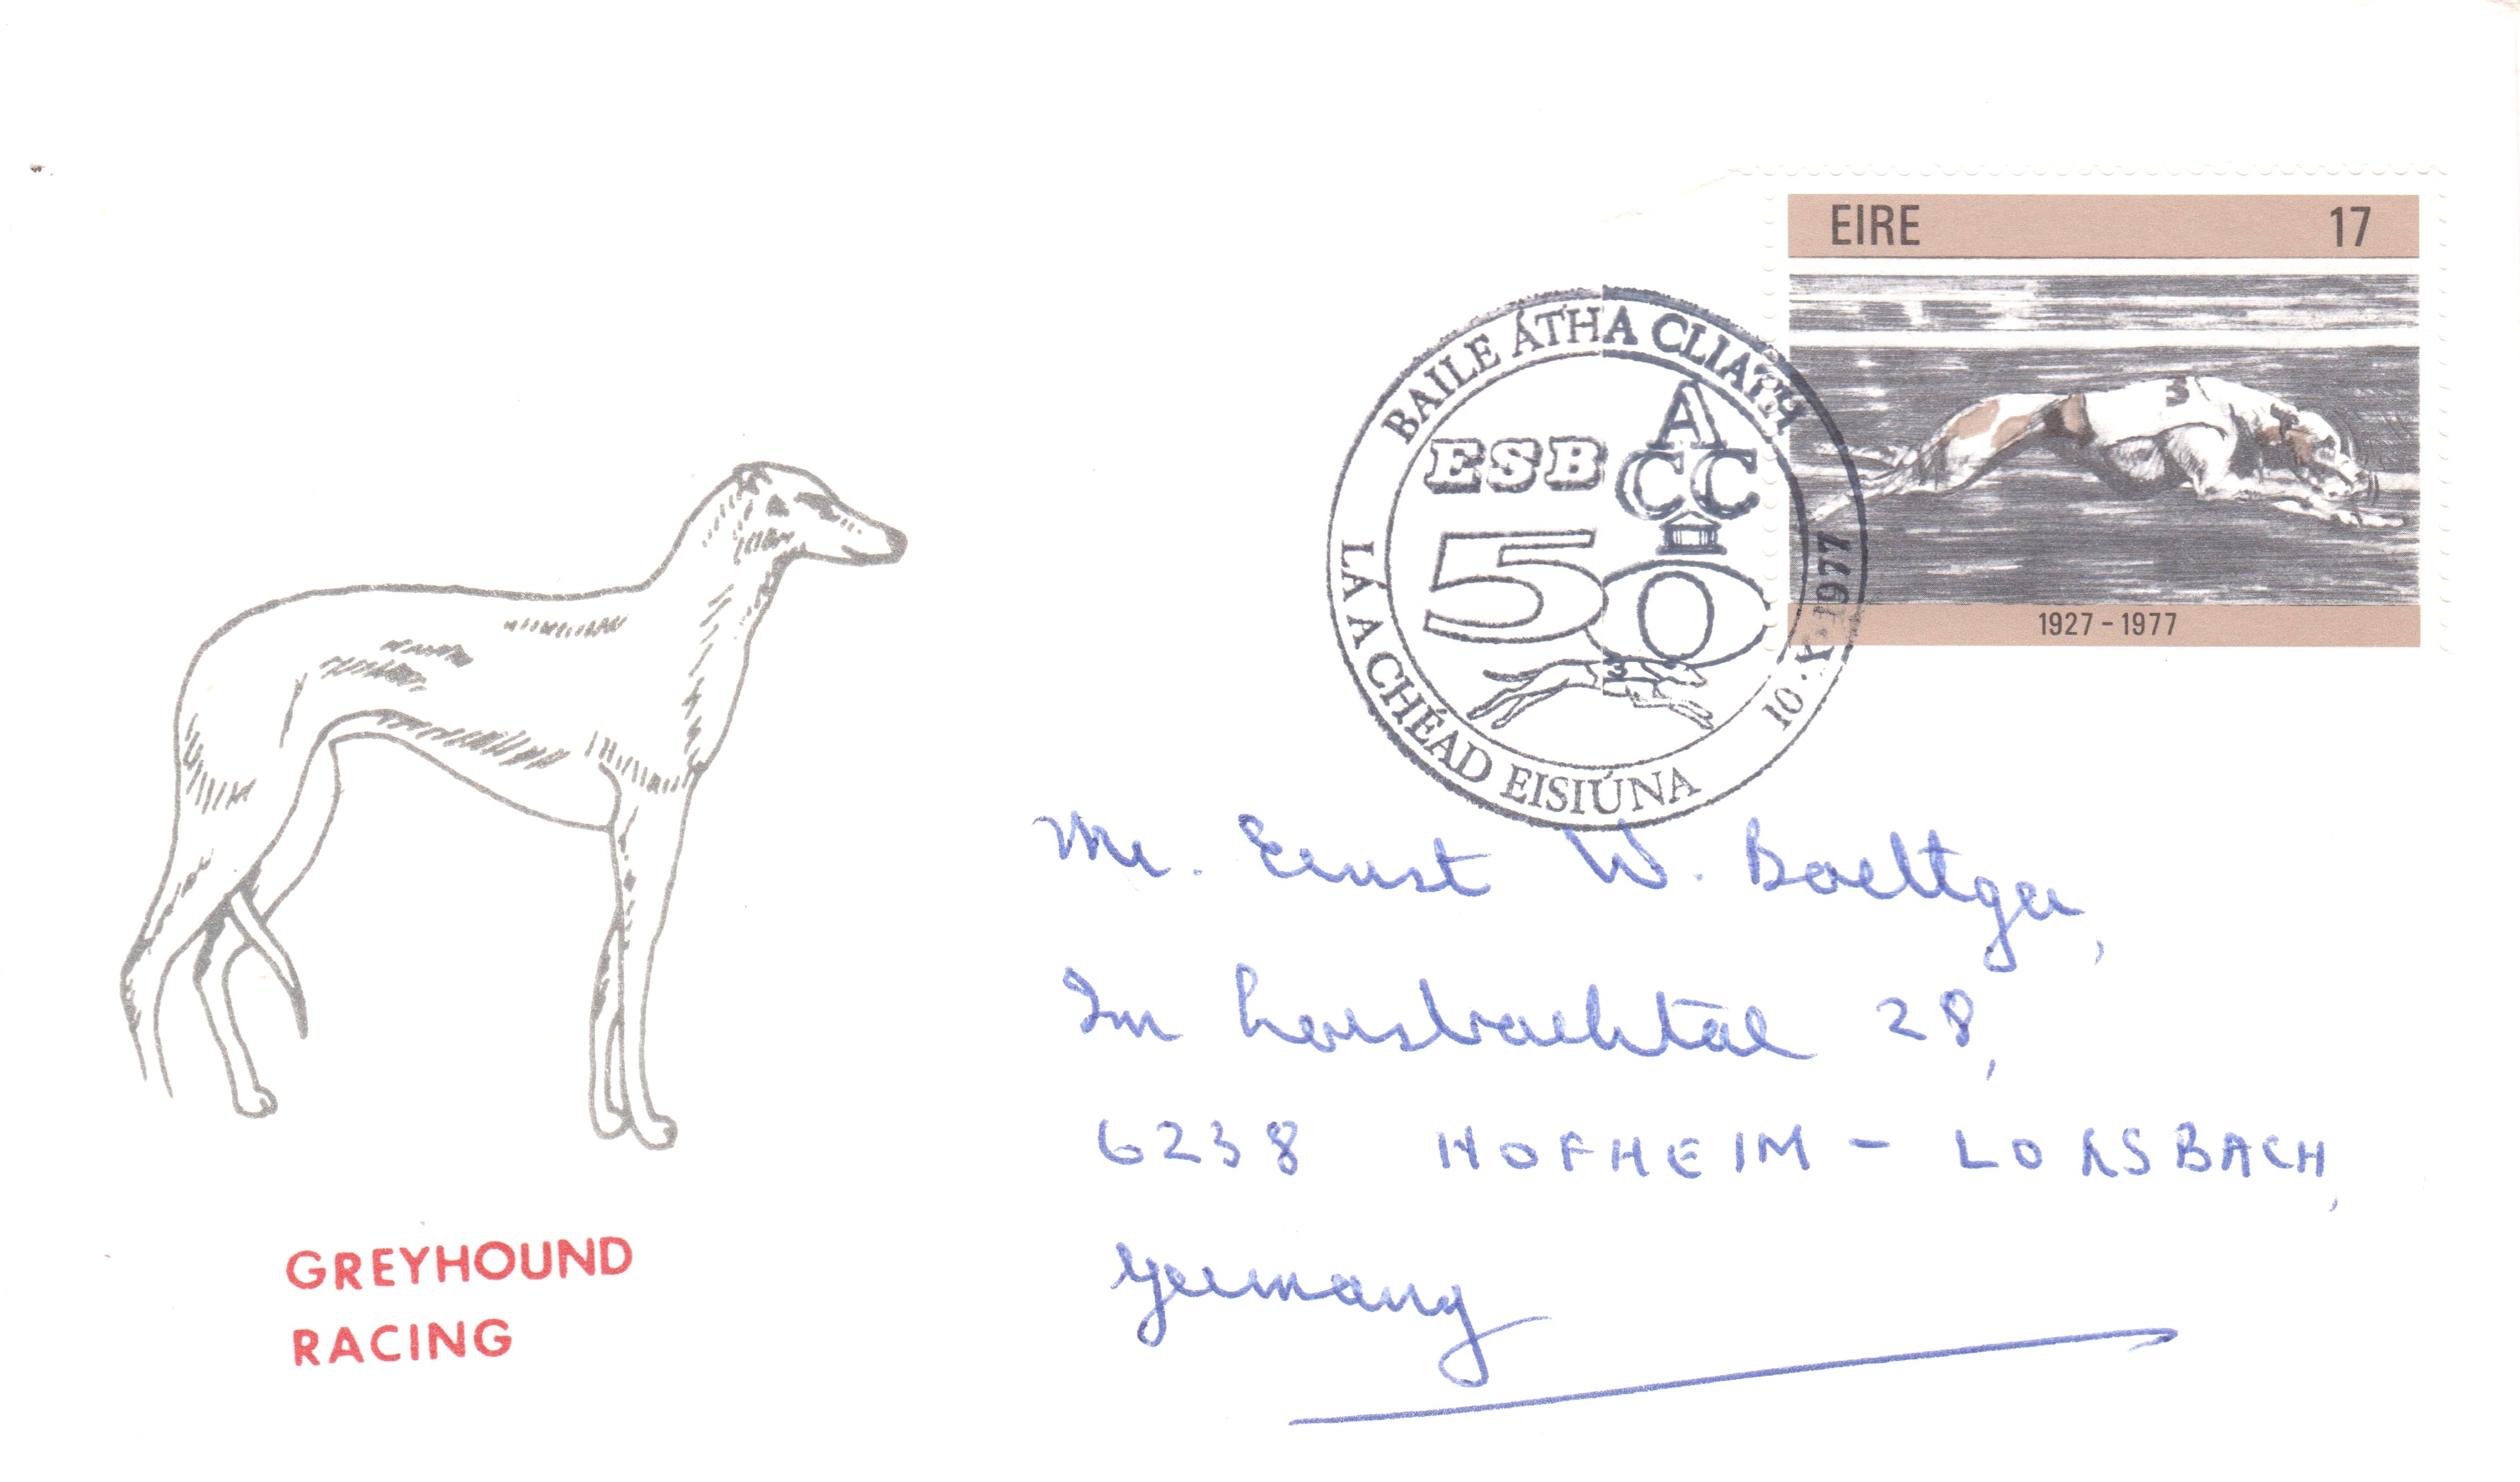 EIRE 17
3
1927 - 1977
BAILE ÁTHA CLIATH
ESB
ACC
50
3
LÁ A CHÉAD EISIÚNA
10.X.1977
Mr. Ernst W. Boettger,
Im Lorsbachtal 28,
6238 HOFHEIM - LORSBACH,
Germany
GREYHOUND
RACING